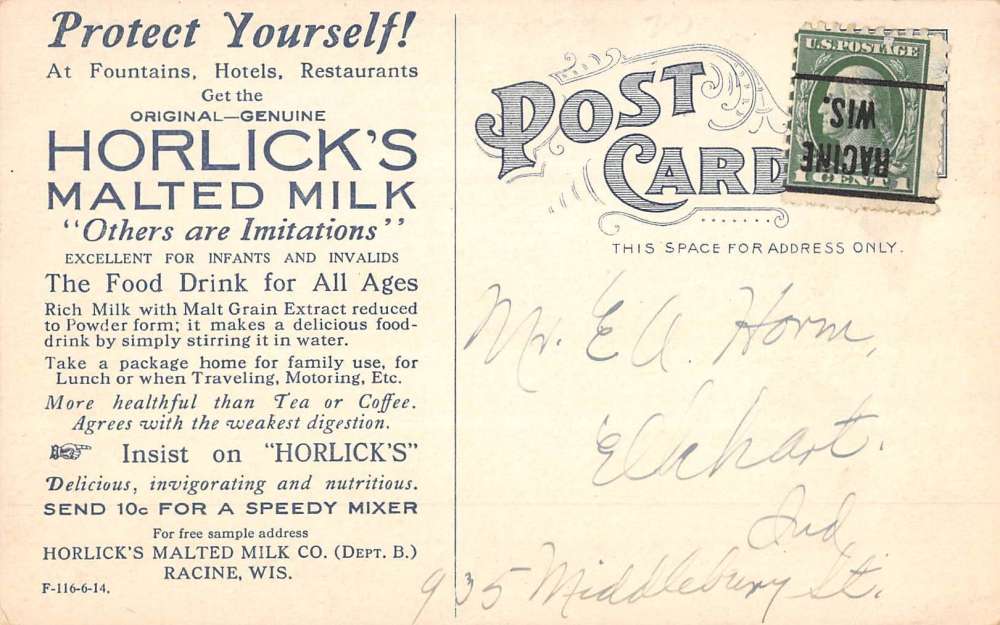 Protect Yourself!
At Fountains, Hotels, Restaurants
Get the
ORIGINAL—GENUINE
HORLICK'S
MALTED MILK
"Others are Imitations"
EXCELLENT FOR INFANTS AND INVALIDS
The Food Drink for All Ages
Rich Milk with Malt Grain Extract reduced
to Powder form; it makes a delicious food-
drink by simply stirring it in water.
Take a package home for family use, for
Lunch or when Traveling, Motoring, Etc.
More healthful than Tea or Coffee.
Agrees with the weakest digestion.
Insist on "HORLICK'S"
Delicious, invigorating and nutritious.
SEND 10c FOR A SPEEDY MIXER
For free sample address
HORLICK'S MALTED MILK CO. (DEPT. B.)
RACINE, WIS.
F-116-6-14.
POST
CARD
U.S. POSTAGE
1 CENT 1
RACINE
WIS.
THIS SPACE FOR ADDRESS ONLY.
Mr. E A. Horm,
Elkhart.
Ind
935 Middlebury St.